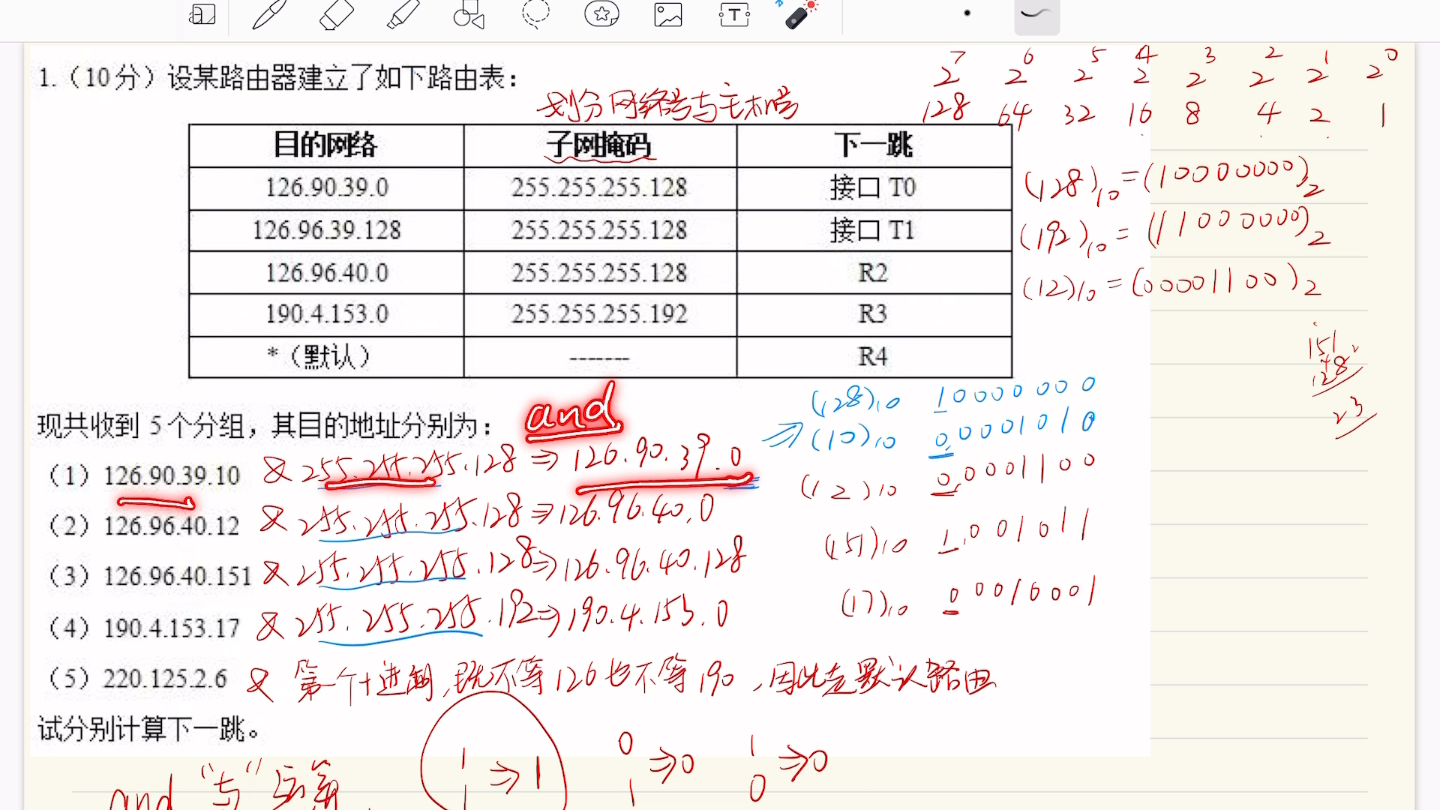 1.（10分）设某路由器建立了如下路由表：
划分网络号与主机号
2^7 2^6 2^5 2^4 2^3 2^2 2^1 2^0
128 64 32 16 8 4 2 1
目的网络 子网掩码 下一跳
126.90.39.0 255.255.255.128 接口 T0
126.96.39.128 255.255.255.128 接口 T1
126.96.40.0 255.255.255.128 R2
190.4.153.0 255.255.255.192 R3
*（默认） ------- R4
(128)10=(10000000)2
(192)10=(11000000)2
(12)10=(00001100)2
151
128
23
现共收到 5 个分组，其目的地址分别为：
and
（1）126.90.39.10 & 255.255.255.128 ⇒ 126.90.39.0
（2）126.96.40.12 & 255.255.255.128 ⇒ 126.96.40.0
（3）126.96.40.151 & 255.255.255.128 ⇒ 126.96.40.128
（4）190.4.153.17 & 255.255.255.192 ⇒ 190.4.153.0
（5）220.125.2.6 & 第一个十进制,既不等126也不等190，因此走默认路由
(128)10 10000000
⇒(10)10 00001010
(12)10 00001100
(151)10 1001011
(17)10 00010001
试分别计算下一跳。
and "与" 运算
1 ⇒ 1 0 ⇒ 0 1 ⇒ 0
1 1 0